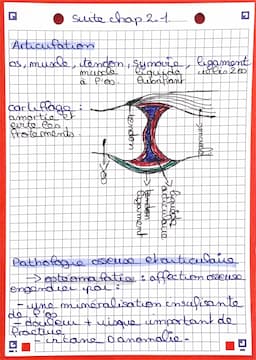 Suite chap 2.1
Articulation
os, muscle, tendon, synovie, ligament
muscle liquide relie 2 os
à l'os. lubrifiant
cartilage :
amortie et
évite les
frottements.
tendon
muscle
os
liquide
articulaire
tendon
ligament
Pathologie osseuse et articulaire
→ ostéomalatie : affection osseuse
engendrée par :
- une minéralisation insufisante
de l'os
- douleur + risque important de
fracture
- anomalie -